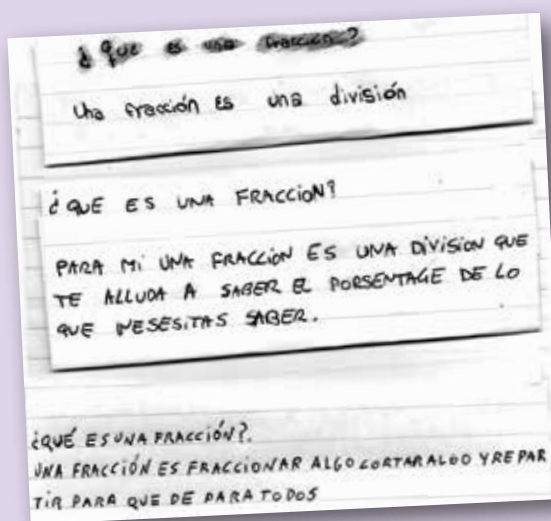 ¿Que es una fracción?
Una fracción es una división
¿QUE ES UNA FRACCION?
PARA MI UNA FRACCION ES UNA DIVISION QUE
TE ALLUDA A SABER EL PORSENTAGE DE LO
QUE NESESITAS SABER.
¿QUÉ ES UNA FRACCIÓN?.
UNA FRACCIÓN ES FRACCIONAR ALGO CORTAR ALGO Y REPAR
TIR PARA QUE DE PARA TODOS